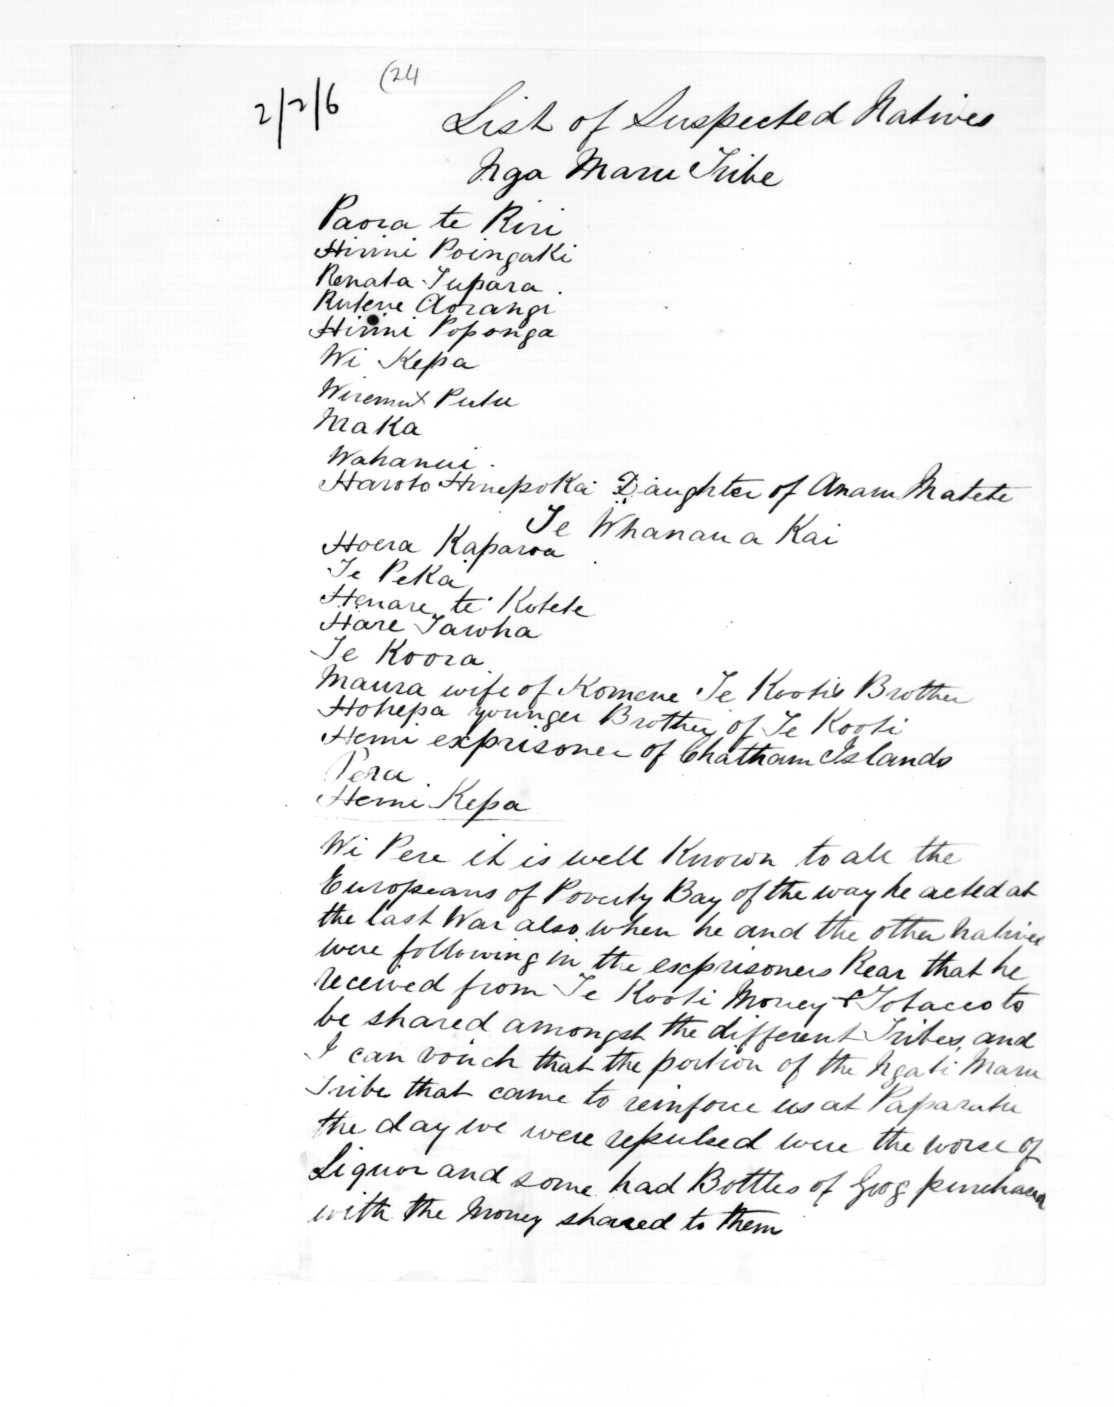 (24
2/2/6
List of Suspected Natives
Nga Maru Tribe
Paora te Riri
Hirini Poingaki
Renata Tupara.
Rutene Aorangi
Hirini Poponga
Wi Kepa
Wiremu Putu
Maka
Wahanui.
Haroto Hinepokai Daughter of Anaru Matete
Te Whanau a Kai
Hoera Kaparoa
Te Peka
Henare te Kotete
Hare Tawha
Te Koora
Maura wife of Komene Te Kooti's Brother
Hohepa younger Brother of Te Kooti
Hemi exprisoner of Chatham Islands
Pera
Hemi Kepa
Wi Pere it is well Known to all the
Europeans of Poverty Bay of the way he acted at
the last War also when he and the other Natives
were following in the exprisoners Rear that he
received from Te Kooti Money & Tobacco to
be shared amongst the different Tribes, and
I can vouch that the portion of the Ngati Maru
Tribe that came to reinforce us at Paparatu
the day we were repulsed were the worse of
Liquor and some had Bottles of Grog purchased
with the Money shared to them